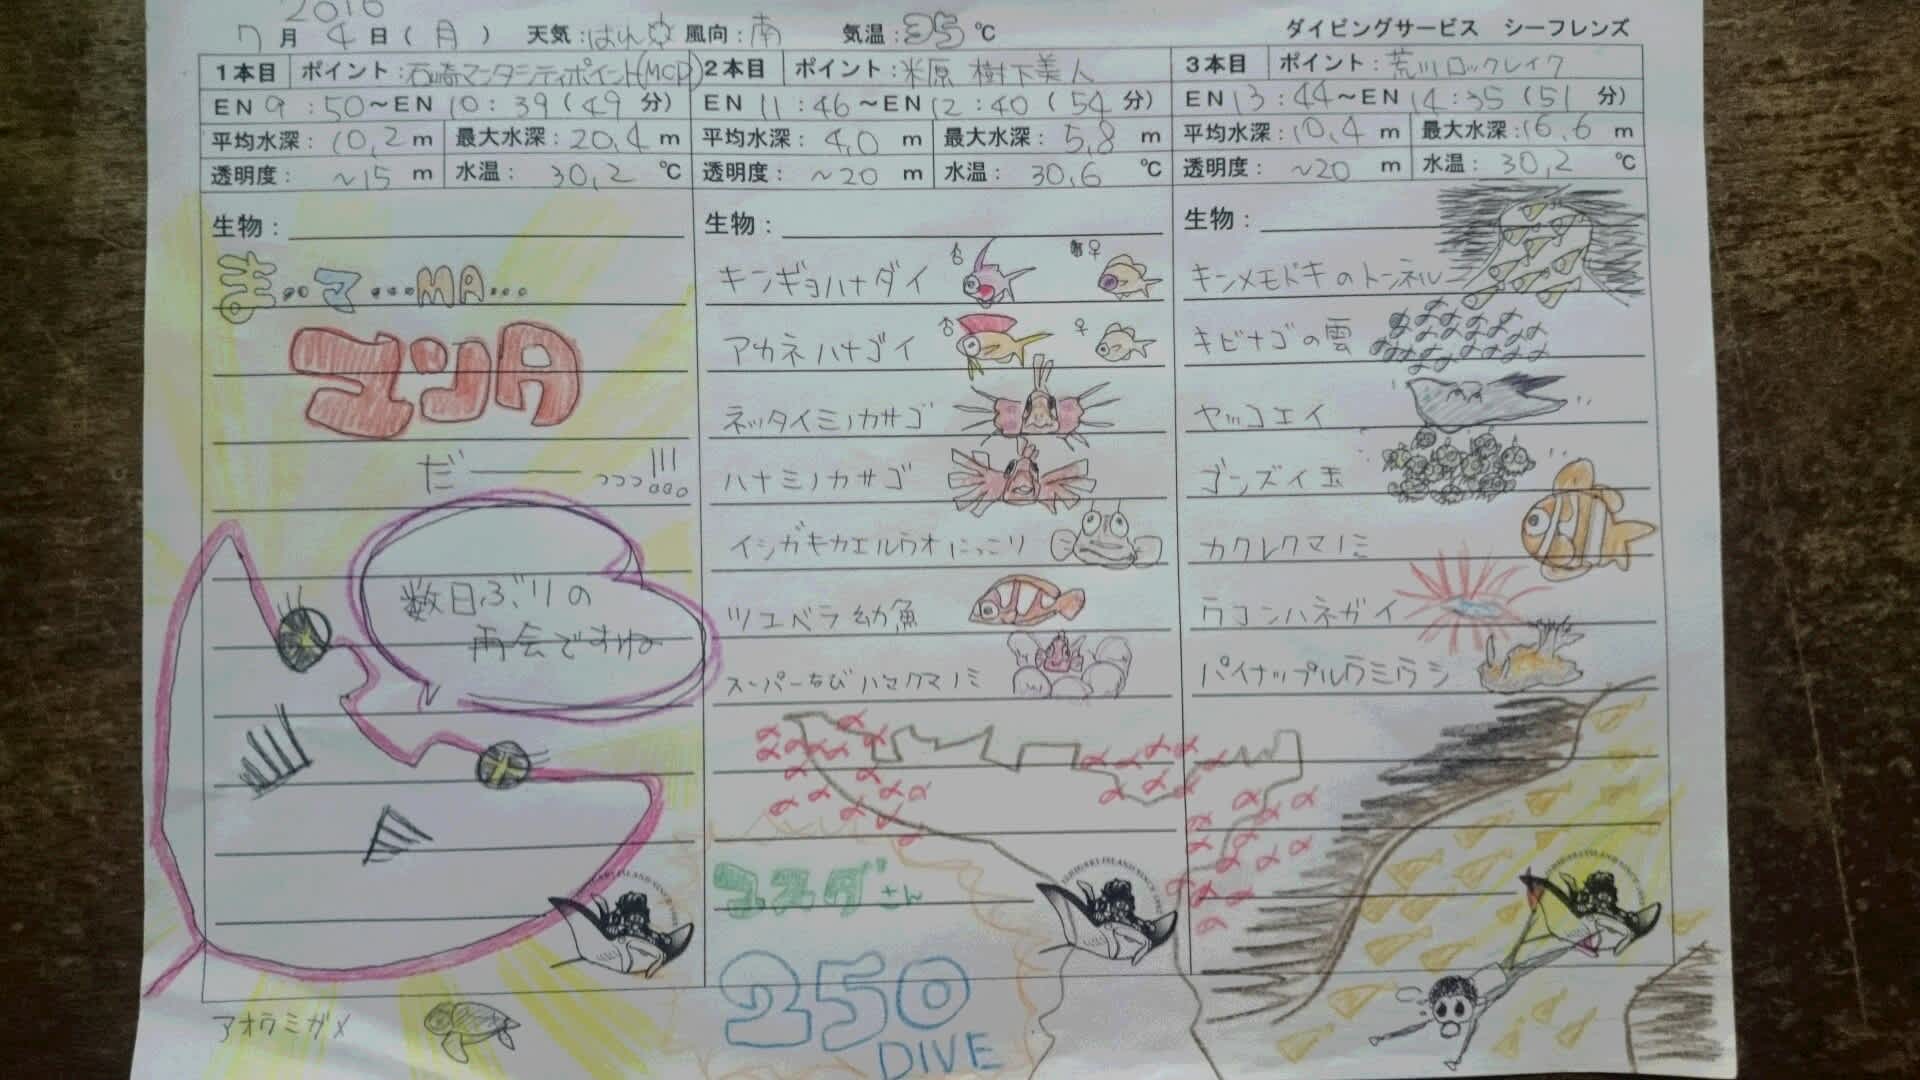 2016
7月4日(月) 天気:はれ 風向:南 気温:35℃ ダイビングサービス シーフレンズ
1本目 ポイント:石崎マンタシティポイント(MCP)
EN 9:50~EN 10:39(49分)
平均水深:10,2m 最大水深:20,4m
透明度:~15m 水温:30,2℃
生物:
ま...マ...MA...
マンタ
だーっっっ!!!
数日ぶりの
再会ですね
アオウミガメ
2本目 ポイント:米原 樹下美人
EN 11:46~EN 12:40(54分)
平均水深:4,0m 最大水深:5,8m
透明度:~20m 水温:30,6℃
生物:
キンギョハナダイ ♂ ♀
アカネハナゴイ ♂ ♀
ネッタイミノカサゴ
ハナミノカサゴ
イシガキカエルウオ にっこり
ツユベラ幼魚
スーパーちびハマクマノミ
コスダさん
250
DIVE
3本目 ポイント:荒川ロックレイク
EN 13:44~EN 14:35(51分)
平均水深:10,4m 最大水深:16,6m
透明度:~20m 水温:30,2℃
生物:
キンメモドキのトンネル
キビナゴの雲
ヤッコエイ
ゴンズイ玉
カクレクマノミ
ウコンハネガイ
パイナップルウミウシ